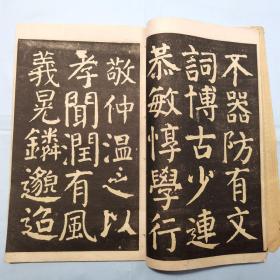 不器防有文
詞博古少連
恭敏惇學行
敬仲温之以
孝聞潤有風
義晃鏻邈迨